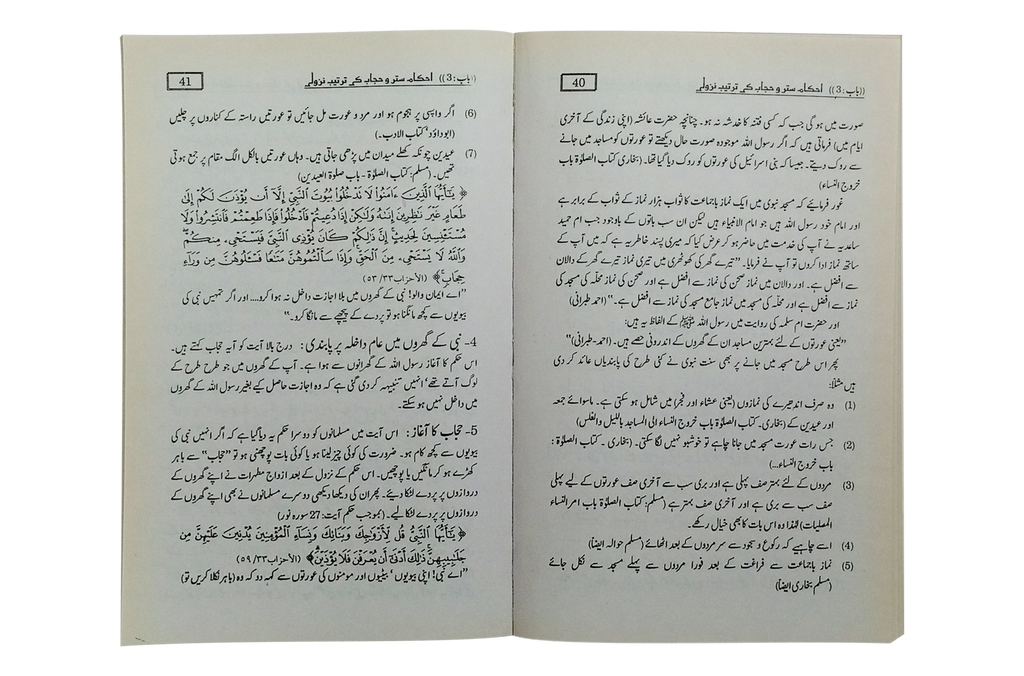 ((باب : 3)) احکام ستر و حجاب کے ترتیب نزولی 40
صورت میں ہو گی جب کہ کسی فتنہ کا خدشہ نہ ہو۔ چنانچہ حضرت عائشہ (اپنی زندگی کے آخری
ایام میں) فرماتی ہیں کہ اگر رسول اللہ موجودہ صورت حال دیکھتے تو عورتوں کو مساجد میں جانے
سے روک دیتے۔ جیسا کہ بنی اسرائیل کی عورتوں کو روک دیا گیا تھا۔ (بخاری کتاب الصلوٰۃ باب
خروج النساء)
غور فرمائیے کہ مسجد نبوی میں ایک نماز باجماعت کا ثواب ہزار نماز کے ثواب کے برابر ہے
اور امام خود رسول اللہ ہیں جو امام الانبیاء ہیں لیکن ان سب باتوں کے باوجود جب ام حمید
ساعدیہ نے آپ کی خدمت میں حاضر ہو کر عرض کیا کہ میری پسند خاطر یہ ہے کہ میں آپ کے
ساتھ نماز ادا کروں تو آپ نے فرمایا۔ ”تیرے گھر کی کوٹھری میں تیری نماز تیرے گھر کے دالان
سے افضل ہے۔ اور دالان میں نماز صحن کی نماز سے افضل ہے اور صحن کی نماز محلہ کی مسجد کی
نماز سے افضل ہے اور محلہ کی مسجد میں نماز جامع مسجد کی نماز سے افضل ہے۔“ (احمد طبرانی)
اور حضرت ام سلمہ کی روایت میں رسول اللہ ﷺ کے الفاظ یہ ہیں:
”یعنی عورتوں کے لئے بہترین مساجد ان کے گھروں کے اندرونی حصے ہیں۔ (احمد۔طبرانی)“
پھر اس طرح مسجد میں جانے پر بھی سنت نبوی نے کئی طرح کی پابندیاں عائد کر دی
ہیں مثلاً:
(1) وہ صرف اندھیرے کی نمازوں (یعنی عشاء اور فجر) میں شامل ہو سکتی ہے۔ ماسوائے جمعہ
اور عیدین کے (بخاری۔ کتاب الصلوٰۃ باب خروج النساء الی المساجد باللیل والغلس)
(2) جس رات عورت مسجد میں جانا چاہے تو خوشبو نہیں لگا سکتی۔ (بخاری۔ کتاب الصلوٰۃ :
باب خروج النساء...)
(3) مردوں کے لئے بہتر صف پہلی ہے اور بری سب سے آخری صف عورتوں کے لیے پہلی
صف سب سے بری ہے اور آخری صف بہتر ہے (مسلم: کتاب الصلوٰۃ باب امر النساء
المصلیات) لہٰذا وہ اس بات کا بھی خیال رکھے۔
(4) اسے چاہیے کہ رکوع و سجود سے سر مردوں کے بعد اٹھائے (مسلم حوالہ ایضاً)
(5) نماز باجماعت سے فراغت کے بعد فورا مردوں سے پہلے مسجد سے نکل جائے
(مسلم بخاری ایضاً)
((باب : 3)) احکام ستر و حجاب کے ترتیب نزولی 41
(6) اگر واپسی پر ہجوم ہو اور مرد و عورت مل جائیں تو عورتیں راستہ کے کناروں پر چلیں
(ابوداؤد‘ کتاب الادب۔)
(7) عیدین چونکہ کھلے میدان میں پڑھی جاتی ہیں۔ وہاں عورتیں بالکل الگ مقام پر جمع ہوتی
تھیں۔ (مسلم: کتاب الصلوٰۃ۔ باب صلوۃ العیدین)
﴿ يَـٰٓأَيُّهَا ٱلَّذِينَ ءَامَنُوا۟ لَا تَدْخُلُوا۟ بُيُوتَ ٱلنَّبِىِّ إِلَّآ أَن يُؤْذَنَ لَكُمْ إِلَىٰ
طَعَامٍ غَيْرَ نَـٰظِرِينَ إِنَىٰهُ وَلَـٰكِنْ إِذَا دُعِيتُمْ فَٱدْخُلُوا۟ فَإِذَا طَعِمْتُمْ فَٱنتَشِرُوا۟ وَلَا
مُسْتَـْٔنِسِينَ لِحَدِيثٍ إِنَّ ذَٰلِكُمْ كَانَ يُؤْذِى ٱلنَّبِىَّ فَيَسْتَحْىِۦ مِنكُمْ
وَٱللَّهُ لَا يَسْتَحْىِۦ مِنَ ٱلْحَقِّ وَإِذَا سَأَلْتُمُوهُنَّ مَتَـٰعًا فَسْـَٔلُوهُنَّ مِن وَرَآءِ
حِجَابٍ﴾ (الأحزاب٥٣/٣٣)
”اے ایمان والو! نبی کے گھروں میں بلا اجازت داخل نہ ہوا کرو.... اور اگر تمہیں نبی کی
بیویوں سے کچھ مانگنا ہو تو پردے کے پیچھے سے مانگا کرو۔“
4- نبی کے گھروں میں عام داخلہ پر پابندی: درج بالا آیت کو آیہ حجاب کہتے ہیں۔
اس حکم کا آغاز رسول اللہ کے گھرانوں سے ہوا ہے۔ آپ کے گھروں میں جو طرح طرح کے
لوگ آتے تھے‘ انہیں تنبیہہ کر دی گئی ہے کہ وہ اجازت حاصل کیے بغیر رسول اللہ کے گھروں
میں داخل نہیں ہو سکتے۔
5- حجاب کا آغاز: اس آیت میں مسلمانوں کو دوسرا حکم یہ دیا گیا ہے کہ اگر انہیں نبی کی
بیویوں سے کچھ کام ہو۔ ضرورت کی کوئی چیز لینا ہو یا کوئی بات پوچھنی ہو تو ”حجاب“ سے باہر
کھڑے ہو کر مانگیں یا پوچھیں۔ اس حکم کے نزول کے بعد ازواج مطہرات نے اپنے گھروں کے
دروازوں پر پردے لٹکا دیئے۔ پھر ان کی دیکھا دیکھی دوسرے مسلمانوں نے بھی اپنے گھروں کے
دروازوں پر پردے لٹکا لیے۔ (بموجب حکم آیت: 27 سورہ نور)
﴿ يَـٰٓأَيُّهَا ٱلنَّبِىُّ قُل لِّأَزْوَٰجِكَ وَبَنَاتِكَ وَنِسَآءِ ٱلْمُؤْمِنِينَ يُدْنِينَ عَلَيْهِنَّ مِن
جَلَـٰبِيبِهِنَّ ذَٰلِكَ أَدْنَىٰٓ أَن يُعْرَفْنَ فَلَا يُؤْذَيْنَ﴾ (الأحزاب٥٩/٣٣)
”اے نبی! اپنی بیویوں‘ بیٹیوں اور مومنوں کی عورتوں سے کہہ دو کہ وہ (باہر نکلا کریں تو)